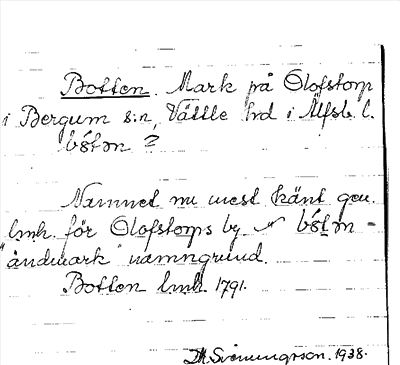 Botten. Mark på Olofstorp
i Bergum s:n, Vättle hd i Älfsb. l.
bótən ?
Namnet nu mest känt gen.
lmh. för Olofstorps by. bótən -
"åndmark" namngrund.
Botten lmh. 1791.
Svenungsson. 1938.